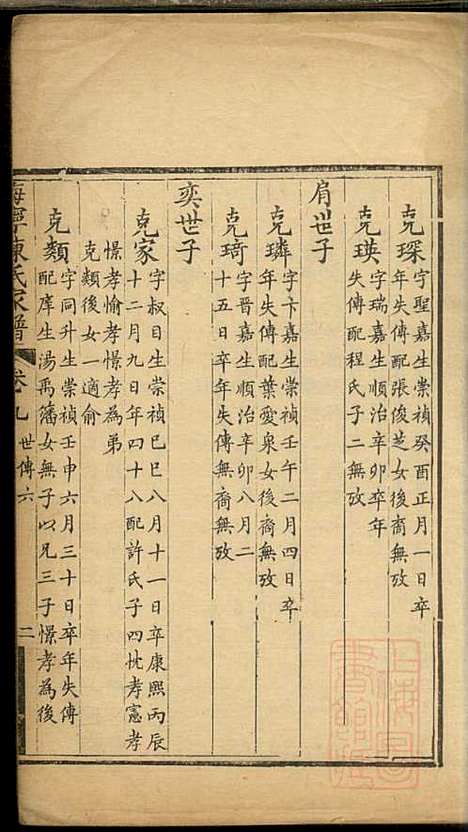 克琛
字聖嘉生崇禎癸酉正月一日卒
年失傳配張俊芝女後裔無攷
克瑛
字瑞嘉生順治辛卯卒年
失傳配程氏子二無攷
肩世子
克璘
字卞嘉生崇禎壬午二月四日卒
年失傳配葉愛泉女後裔無攷
克琦
字晋嘉生順治辛卯八月二
十五日卒年失傳無裔無攷
奕世子
克家
字叔目生崇禎已巳八月十一日卒康熙丙辰
十二月九日年四十八配許氏子四忱孝憲孝
憬孝愉孝憬孝為弟
克類後女一適俞
克類
字同升生崇禎壬申六月三十日卒年失傳
配庠生湯禹籓女無子以兄三子憬孝為後
海寧陳氏家譜 卷九 世傳六 二
上海圖書館藏